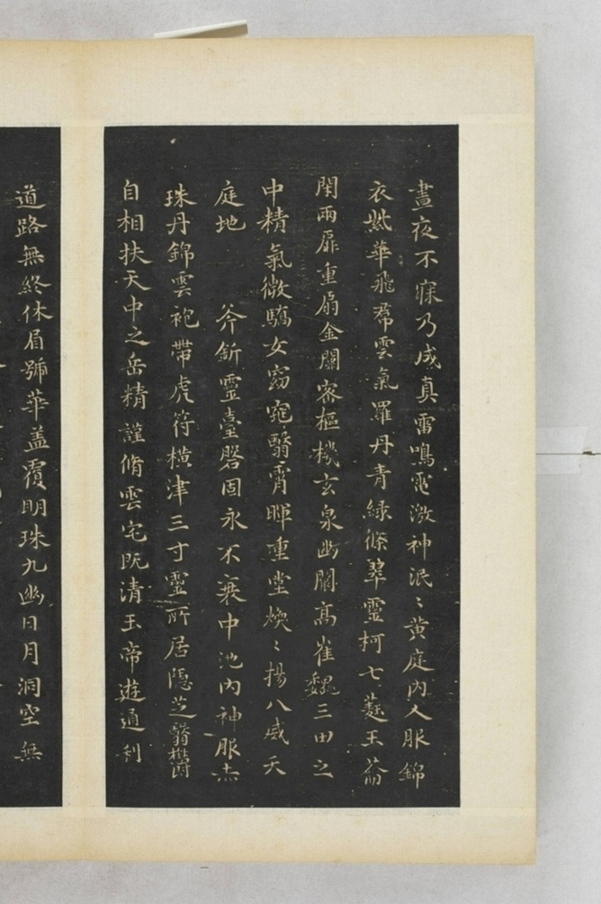 晝夜不寐乃成真雷鳴電激神泯〻黃庭內人服錦
衣紫華飛帬雲氣羅丹青綠條翠靈柯七蕤玉籥
閉兩扉重扇金關密樞機玄泉幽闕高崔巍三田之
中精氣微驕女窈窕翳霄暉重堂煥〻揚八威天
庭地斧斫靈臺磐固永不衰中池內神服赤
珠丹錦雲袍帶虎符橫津三寸靈所居隱芝翳鬱
自相扶天中之岳精謹脩雲宅既清玉帝遊通利
道路無終休眉號華盖覆明珠九幽日月洞空無